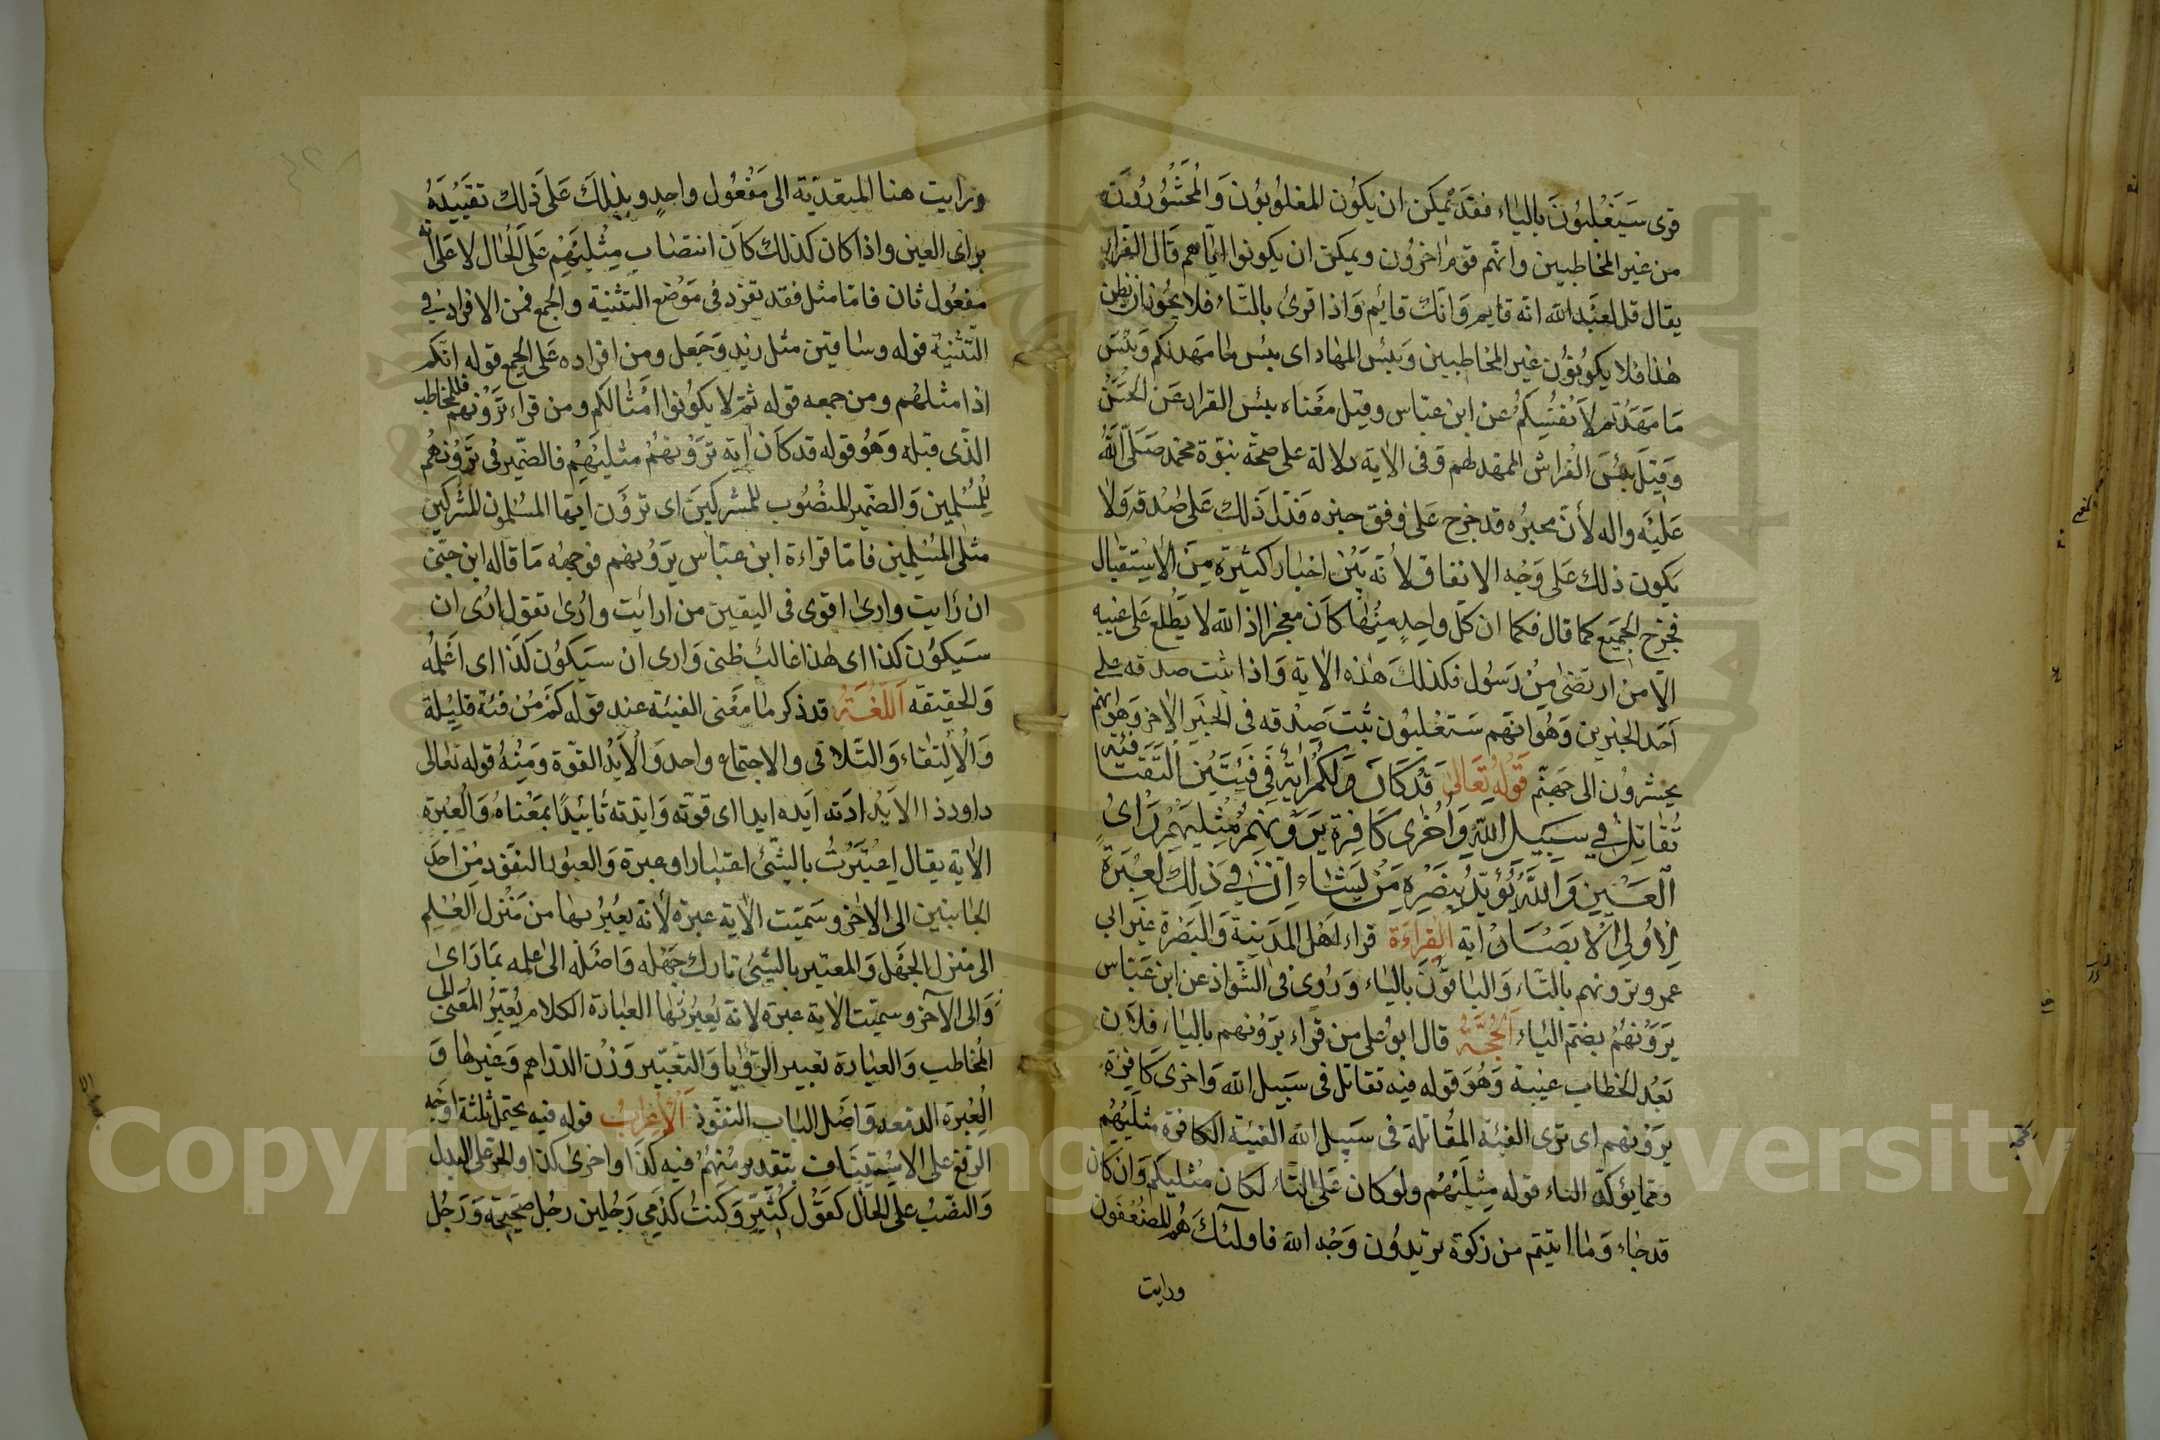 قرى سيغلبون بالياء فقد يمكن ان يكون المغلوبون والمحشورون
من غير المخاطبين وانهم قوم اخرون ويمكن ان يكونوا اياهم قال الفراء
يقال قل لعبد الله انه قايم وانك قائم واذا قرئ بالتاء فلا يجوز ان يظن
هذا فلا يكونون غير المخاطبين وبئس المهاد اى بئس ما مهد لكم وبئس
ما مهدتم لانفسكم عن ابن عباس وقيل معناه بئس القرار عن الحسن
وقيل بئس الفراش الممهد لهم وفى الاية دلالة على صحة نبوة محمد صلى الله
عليه واله لأن مخبره قد خرج على وفق خبره فدل ذلك على صدقه ولا
يكون ذلك على وجه الاتفاق لأنه بين اخبارا كثيرة من الاستقبال
فخرج الجميع كما قال فكما ان كل واحد منها كان معجزا اذ الله لا يطلع على غيبه
الا من ارتضى من رسول فكذلك هذه الاية واذا ثبت صدقه على
احد الخبرين وهو انهم ستغلبون ثبت صدقه فى الخبر الاخر وهو انهم
يحشرون الى جهنم قوله تعالى قد كان لكم اية في فئتين التقتا فئة
تقاتل في سبيل الله واخرى كافرة يرونهم مثليهم رأى
العين والله يؤيد بنصره من يشاء ان في ذلك لعبرة
لاولي الابصار اية القراءة قراء اهل المدينة والبصرة غير ابي
عمرو ترونهم بالتاء والباقون بالياء وروى فى الشواذ عن ابن عباس
يرونهم بضم الياء الحجة قال ابو على من قراء يرونهم بالياء فلان
بعد الخطاب غيبة وهو قوله فيه تقاتل فى سبيل الله واخرى كافرة
يرونهم اى ترى الفئة المقاتلة فى سبيل الله الفيئة الكافرة مثليهم
ومما يؤكد الياء قوله مثليهم ولو كان على التاء لكان مثليكم وان كان
قد جاء وما اتيتم من زكوة تريدون وجه الله فاولئك هم المضعفون
ورايت
ورايت هنا المتعدية الى مفعول واحد ويدلك على ذلك تقييده
براى العين واذا كان كذلك كان انتصاب مثليهم على الحال لا على انه
مفعول ثان فاما مثل فقد تفرد فى موضع التثنية والجمع فمن الافراد في
التثنية قوله وساقين مثل زيد وجعل ومن افراده على الجمع قوله انكم
اذا مثلهم ومن جمعه قوله ثم لا يكونوا امثالكم ومن قراء ترونهم فللخطاب
الذى قبله وهو قوله قد كان اية ترونهم مثليهم فالضمير فى ترونهم
للمسلمين والضمير المنصوب للمشركين اى ترون ايها المسلمون المشركين
مثلى المسلمين فاما قراءة ابن عباس يرونهم فوجهه ما قاله ابن جنى
ان رايت وارى اقوى فى اليقين من ارايت وارى تقول ارى ان
سيكون كذا اى هذا غالب ظنى وارى ان سيكون كذا اى اعلمه
والحقيقه اللغة قد ذكرنا معنى الفيئة عند قوله كم من فئة قليلة
والالتقاء والتلاقى والاجتماع واحد والايد القوة ومنه قوله تعالى
داود ذا الايد ادته ايده ايدا اى قوته وايدته تأييدا بمعناه والعبرة
الاية يقال اعتبرت بالشئ اعتبارا وعبرة والعبور النفوذ من احد
الجانبين الى الاخر وسميت الاية عبرة لأنه يعبر بها من منزل العلم
الى منزل الجهل والمعتبر بالشئ تارك جهله وواصل الى علمه بما راى
والى الآخر وسميت الاية عبرة لانه يعبر بها العبادة الكلام يعبر المعنى الى
المخاطب والعبارة تعبير الرؤيا والتعبير وزن الدراهم وغيرها و
العبرة الدمعه واصل الباب النفوذ الاعراب قوله فيه يحتمل ثلثة اوجه
الرفع على الاستيناف بتقدير منهم فيه كذا واخرى كذا والجر على البدل
والنصب على الحال كقول كثير وكنت كذى رجلين رجل صحيحة ورجل